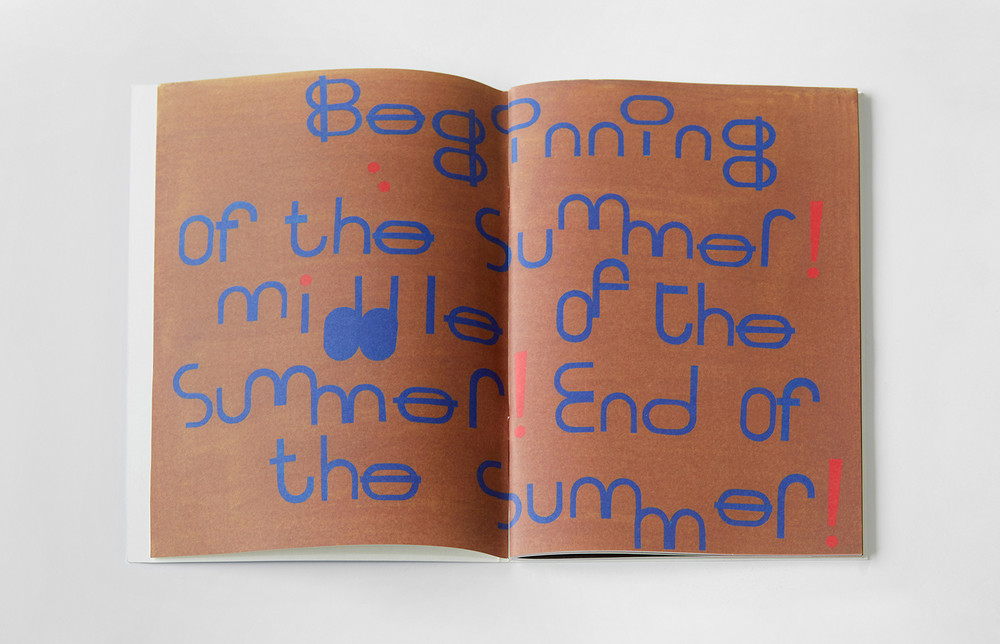 Beginning
of the Summer!
middle of the
Summer! End of
the Summer!